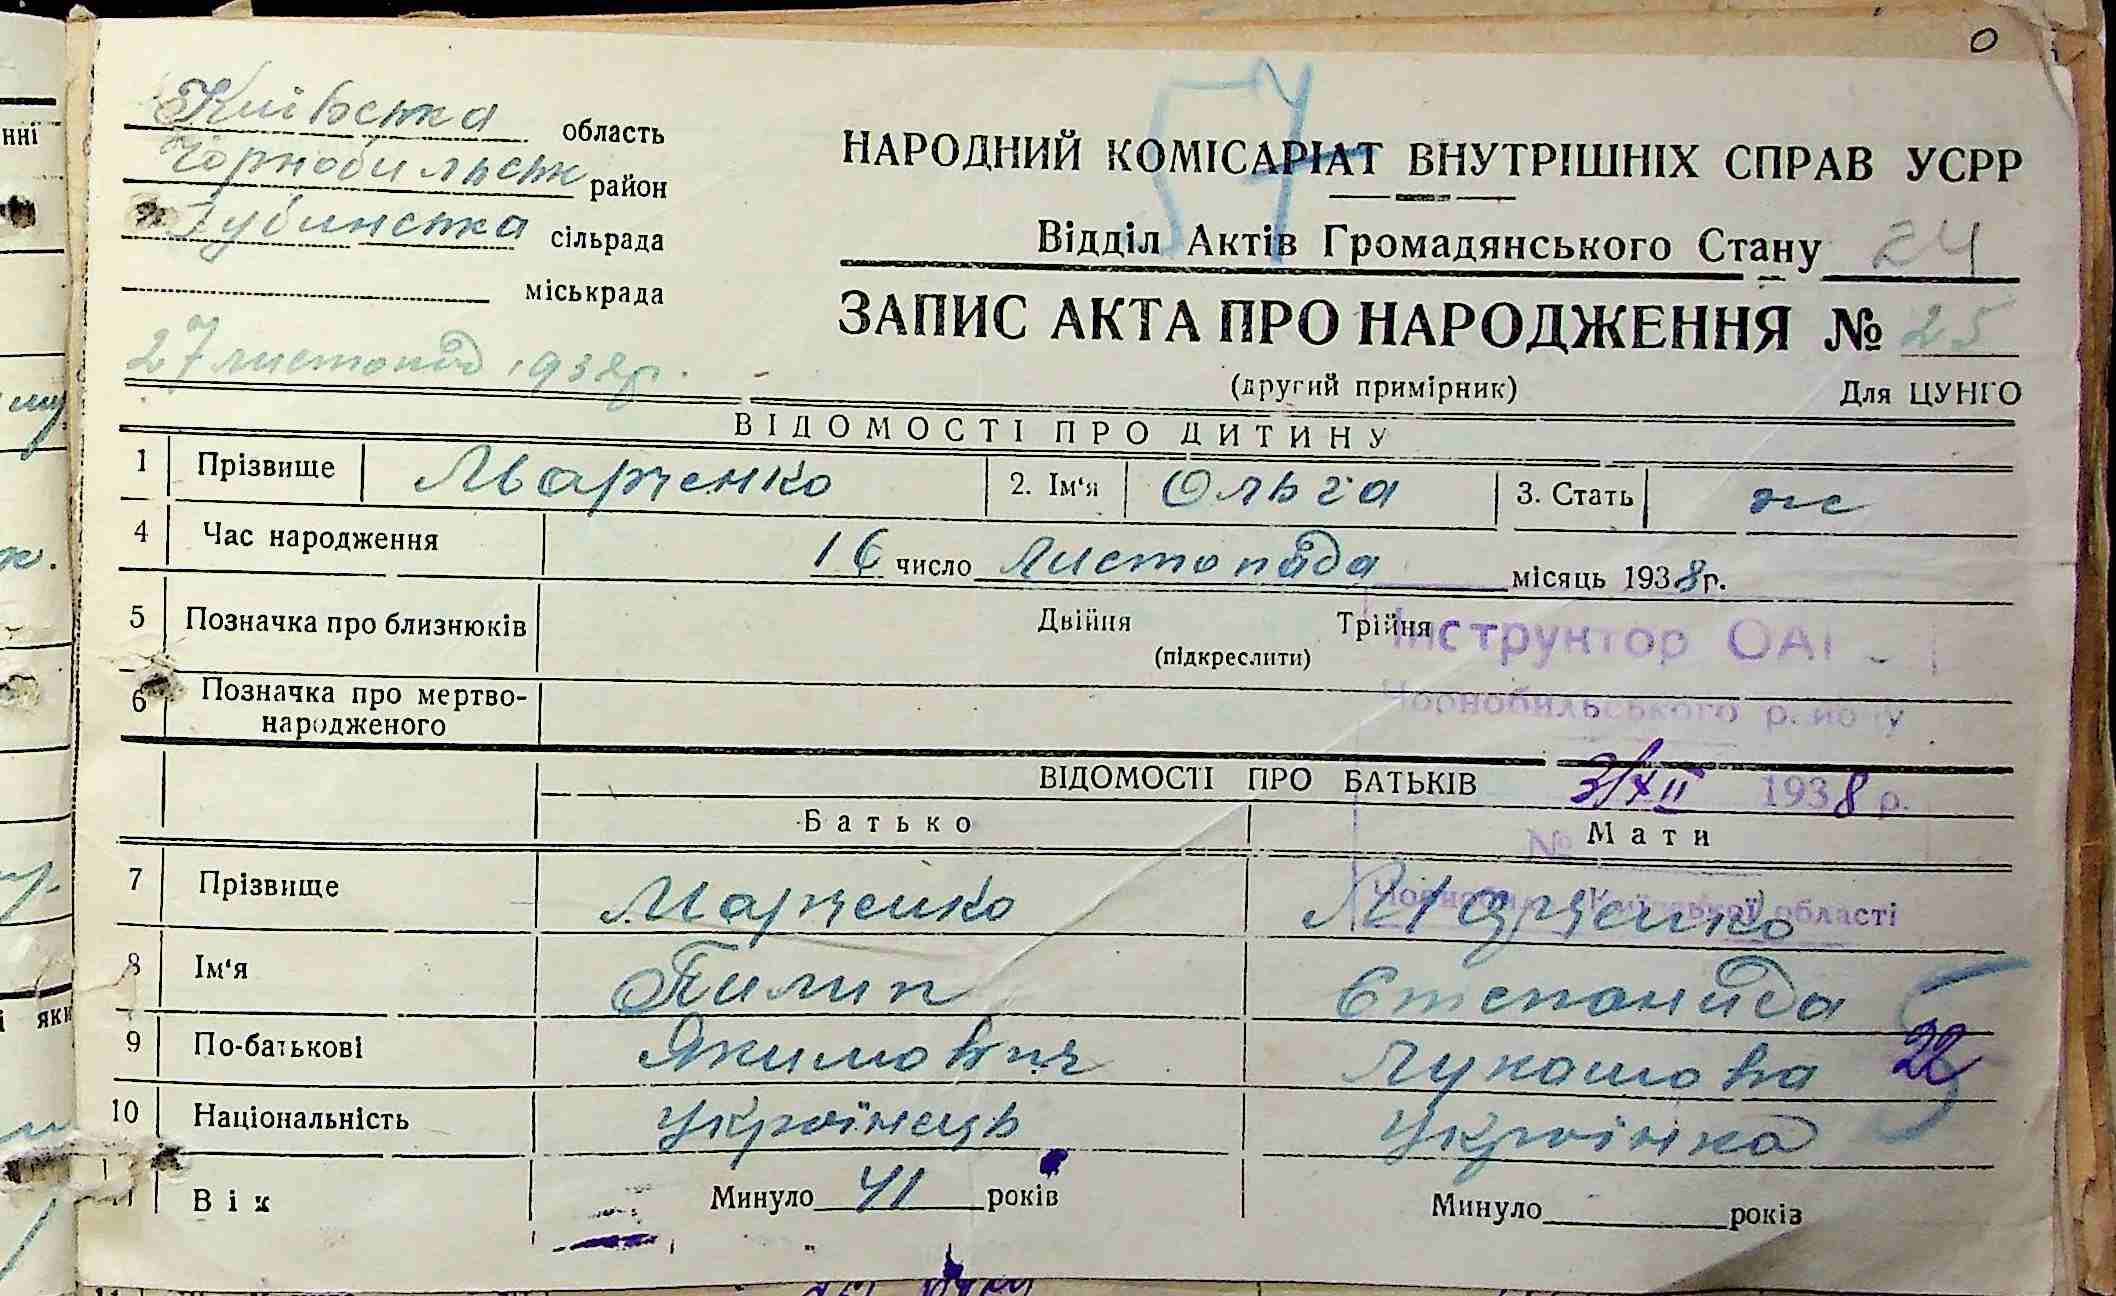 О
Київська область
Чорнобильськ район
Губинська сільрада
міськрада
НАРОДНИЙ КОМІСАРІАТ ВНУТРІШНІХ СПРАВ УСРР
Відділ Актів Громадянського Стану 24
ЗАПИС АКТА ПРО НАРОДЖЕННЯ № 25
27 листопад 1938р.
(другий примірник) Для ЦУНГО
ВІДОМОСТІ ПРО ДИТИНУ
1 Прізвище Марченко 2. Ім'я Ольга 3. Стать ж
4 Час народження 16 число листопада місяць 1938р.
5 Позначка про близнюків Двійня Трійня
(підкреслити)
Інструктор ОАГ
6 Позначка про мертво-
народженого
Чорнобильського району
ВІДОМОСТІ ПРО БАТЬКІВ
3/XII 1938 р.
Батько Мати
№
7 Прізвище Марченко Марченко
Київської області
8 Ім'я Пилип Степанида
9 По-батькові Якимович Лукашова 22
10 Національність українець українка
11 Вік Минуло 41 років Минуло років